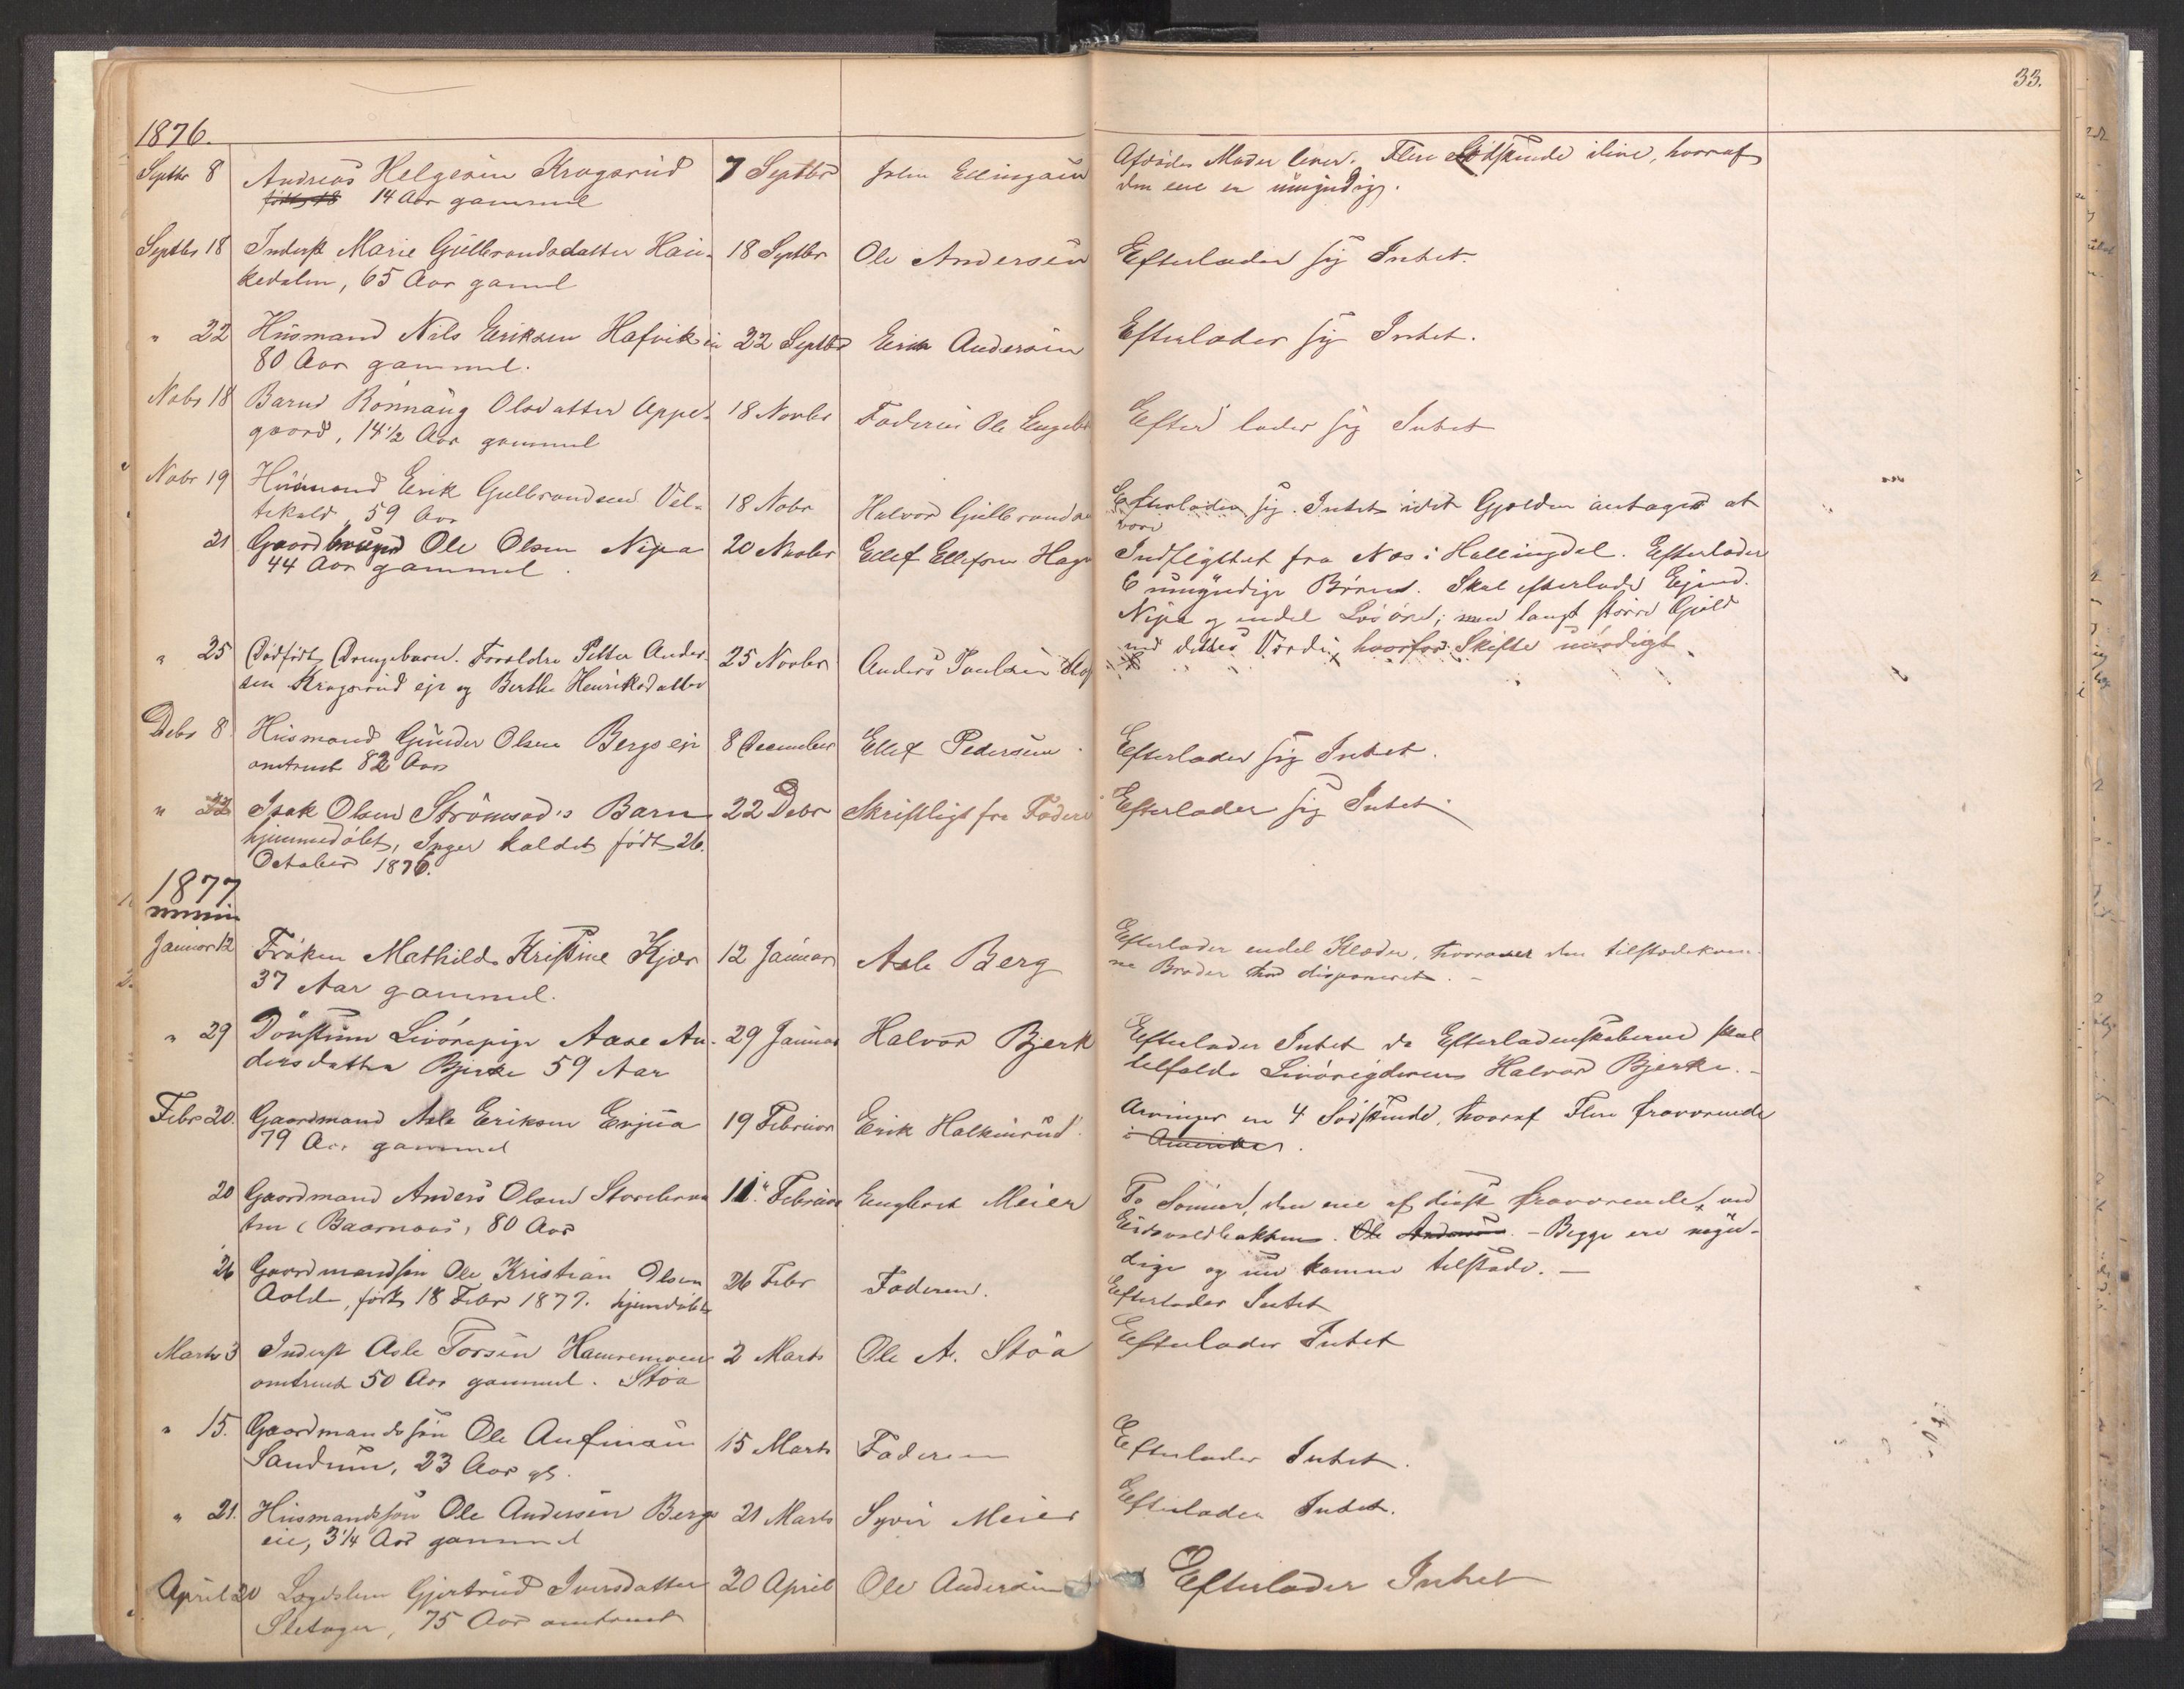 33.
1876.
Septbr 8 Andreas Helgesen Kragsrud 7 Septbr John Ellingsen Afdødes Moder lever. Flere Södskende ilive, hvoraf
14 Aar gammel den ene er umyndig.
Septbr 18 Inderst Marie Gulbrandsdatter Hau- 18 Septbr Ole Andersen Efterlader sig Intet.
kedalen, 65 Aar gaml
" 22 Husmand Nils Eriksen Hafvik 22 Septbr Erik Andersen Efterlader sig Intet.
80 Aar gammel.
Nobr 18 Barnet Rönnaug Olsdatter Appel- 18 Novbr Faderen Ole Engebr Efterlader sig Intet
gaard, 14½ Aar gammel
Nobr 19 Husmand Erik Gulbrandsen Vel- 18 Nobr Halvor Gulbrands Efterlader sig Intet idet Gjælden antages at
tekold, 59 Aar være
21 Gaardbruger Ole Olsen Nipa 20 Novbr Ellef Ellefsen Hag Indflyttet fra Næs i Hallingdal. Efterlader
44 Aar gammel. 6 umyndige Börn. Skal efterlade Ejend.
Nipa og endel Lösöre; men langt större Gjæld
" 25 Dödfödt Drengebarn. Forældre Petter Ander- 25 Novbr Anders Paulsen end dettes Værdi, hvorfor Skifte unödigt
sen Kragsrud eje og Berthe Henriksdatter
Debr 8 Husmand Gunder Olsen Bergs eje 8 December Ellef Pedersen. Efterlader sig Intet.
omtrent 82 Aar
" 22 Isak Olsen Strömsod's Barn 22 Debr Skriftligt fra Faderen Efterlader sig Intet.
hjemmedöbt, Inger kaldet födt 26.
October 1876.
1877
Januar 12 Fröken Mathilde Kristine Kjær 12 Januar Asle Berg Efterlader endel Klæder, hvorover den tilstedekom-
37 Aar gammel. ne Broder har disponeret. -
" 29 Livörepige Aase An- 29 Januar Halvor Bjerk Efterlader Intet da Efterladenskaberne skal
dersdatter Bjerke 59 Aar tilfalde Livöregiveren Halvor Bjerke. -
Febr 20. Gaardmand Asle Eriksen Enjua 19 Februar Erik Halkinrud. Arvinger en 4 Södskende, hvoraf Flere fraværende
79 Aar gammel i Amerika.
20 Gaardmand Anders Olsen Storebraa- 11 Februar Engebret Meier To Sönner, den ene af disse fraværende ved
ten (Baarnaas), 80 Aar Eidsvoldbakken. Ole Andersen. - Begge ere myn-
26 Gaardmandssön Ole Kristian Olsen 26 Febr Faderen. dige og nu komne tilstede. -
Aalde, födt 18 Febr 1877. hjemdöbt Efterlader Intet
Marts 3 Inderst Asle Torsen Hamremoen 2 Marts Ole A. Stöa Efterlader Intet
omtrent 50 Aar gammel. Stöa
" 15. Gaardmandssön Ole Aufinsen 15 Marts Faderen Efterlader Intet.
Sandum, 23 Aar gl.
" 21. Husmandssön Ole Andersen Bergs 21 Marts Syver Meier Efterlader Intet.
eie, 3¼ Aar gammel
April 20 Lægdslem Gjertrud Iversdatter 20 April Ole Andersen Efterlader Intet
Sletager, 75 Aar omtrent